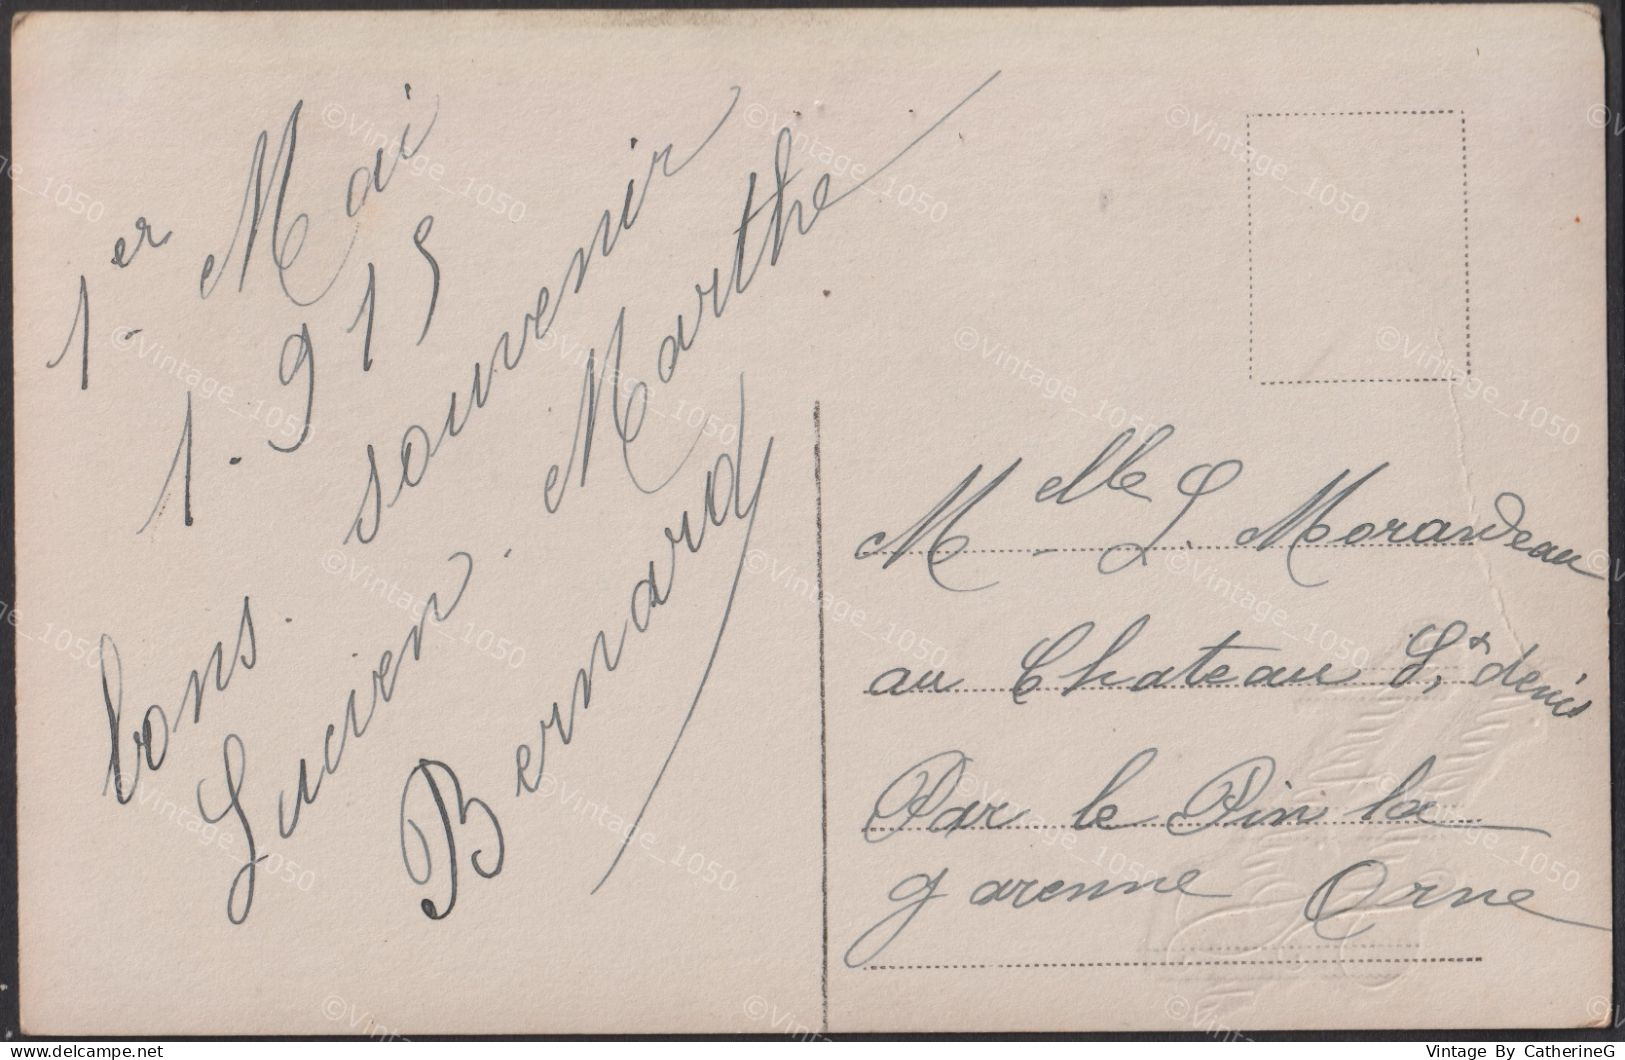 1er Mai
1.915
bons souvenir
Lucien. Marthe
Bernard
Melle L. Morandeau
au Chateau St denis
Par le Pin la
garenne Orne
delcampe.net
Vintage By CatherineG